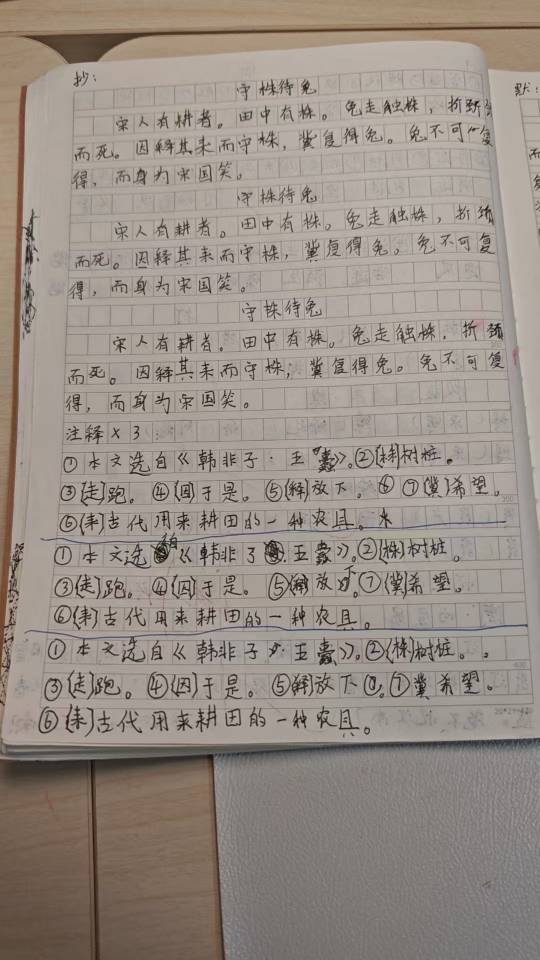 抄：
守株待兔
宋人有耕者。田中有株。兔走触株，折颈
而死。因释其耒而守株，冀复得兔。兔不可复
得，而身为宋国笑。
守株待兔
宋人有耕者。田中有株。兔走触株，折颈
而死。因释其耒而守株，冀复得兔。兔不可复
得，而身为宋国笑。
守株待兔
宋人有耕者。田中有株。兔走触株，折颈
而死。因释其耒而守株，冀复得兔。兔不可复
得，而身为宋国笑。
注释×3：
①本文选自《韩非子·五蠹》。②(株)树桩。
③(走)跑。④(因)于是。⑤(释)放下。⑥⑦(冀)希望。
⑥(耒)古代用来耕田的一种农具。
①本文选自《韩非子·五蠹》。②(株)树桩。
③(走)跑。④(因)于是。⑤(释)放下。⑦(冀)希望。
⑥(耒)古代用来耕田的一种农具。
①本文选自《韩非子·五蠹》。②(株)树桩。
③(走)跑。④(因)于是。⑤(释)放下。⑦冀希望。
⑥(耒)古代用来耕田的一种农具。
默：